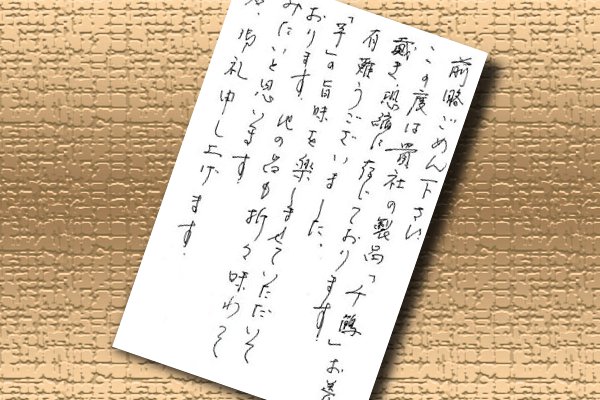 前略ごめん下さい
この度は貴社の製品「千鶴」お
戴き恐縮に存じております。
有難うございました。
「芋」の旨味を楽しませていただいて
おります。他の品も折々味わって
みたいと思います。
御礼申し上げます。